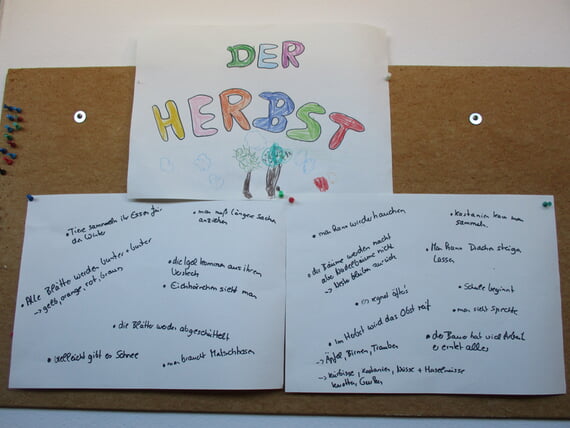 DER
HERBST
• Tiere sammeln ihr Essen für
den Winter
• man muß längere Sachen
anziehen
• Alle Blätter werden bunter + bunter
→ gelb, orange, rot, braun
• die Igel kommen aus ihren
Versteck
• Eichhörnchen sieht man
• die Blätter werden abgeschüttelt
• vielleicht gibt es Schnee
• man braucht Matschhosen
• man kann wieder hauchen
• kastanien kann man
sammeln.
• die Bäume werden nackt
aber Nadelbäume nicht
→ bleiben
• Man kann Drachen steigen
lassen
• es regnet öfter
• Schule beginnt
• man sieht Spechte
• Im Herbst wird das Obst reif
→ Äpfel, Birnen, Trauben
• der Bauer hat viel Arbeit
er erntet alles
→ kürbisse, kastanien, Nüsse + Haselnüsse
karotten, Gurken